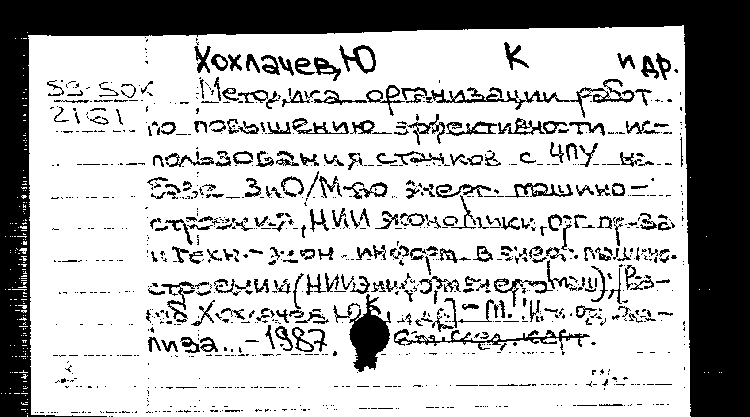 Хохлачев, Ю К и др.
Методика организации работ
по повышению эффективности ис-
пользования станков с ЧПУ на
базе /М-во энерг. машино-
строения, НИИ экономики, орг. пр-ва
и техн.-экон. информ. в энерг. машино-
строении (НИИэинформэнергомаш); [Ра-
Хохлачев Ю К и др.] - М.:
лиза... - 1987.